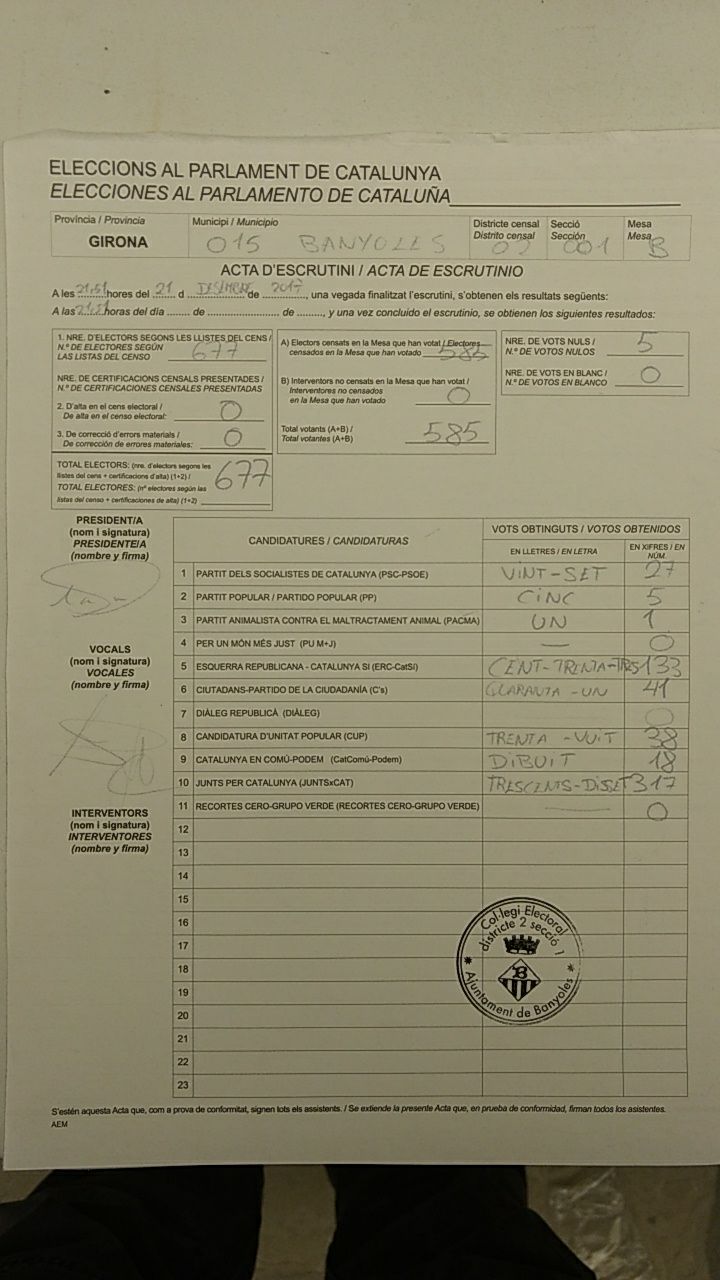 ELECCIONS AL PARLAMENT DE CATALUNYA
ELECCIONES AL PARLAMENTO DE CATALUÑA
Província / Provincia
GIRONA
Municipi / Municipio
015 BANYOLES
Districte censal
Distrito censal
02
Secció
Sección
001
Mesa
Mesa
B
ACTA D'ESCRUTINI / ACTA DE ESCRUTINIO
A les 21,51 hores del 21 d DESEMBRE de 2017, una vegada finalitzat l'escrutini, s'obtenen els resultats següents:
A las 21,51 horas del día ........ de ................ de ........, y una vez concluido el escrutinio, se obtienen los siguientes resultados:
1. NRE. D'ELECTORS SEGONS LES LLISTES DEL CENS /
N.º DE ELECTORES SEGÚN
LAS LISTAS DEL CENSO 677
NRE. DE CERTIFICACIONS CENSALS PRESENTADES /
N.º DE CERTIFICACIONES CENSALES PRESENTADAS
2. D'alta en el cens electoral /
De alta en el censo electoral: 0
3. De correcció d'errors materials /
De corrección de errores materiales: 0
TOTAL ELECTORS: (nre. d'electors segons les
llistes del cens + certificacions d'alta) (1+2) /
TOTAL ELECTORES: (nº electores según las
listas del censo + certificaciones de alta) (1+2) 677
A) Electors censats en la Mesa que han votat / Electores
censados en la Mesa que han votado 585
B) Interventors no censats en la Mesa que han votat /
Interventores no censados
en la Mesa que han votado 0
Total votants (A+B) /
Total votantes (A+B) 585
NRE. DE VOTS NULS /
N.º DE VOTOS NULOS 5
NRE. DE VOTS EN BLANC /
N.º DE VOTOS EN BLANCO 0
PRESIDENT/A
(nom i signatura)
PRESIDENTE/A
(nombre y firma)
VOCALS
(nom i signatura)
VOCALES
(nombre y firma)
INTERVENTORS
(nom i signatura)
INTERVENTORES
(nombre y firma)
CANDIDATURES / CANDIDATURAS
VOTS OBTINGUTS / VOTOS OBTENIDOS
EN LLETRES / EN LETRA
EN XIFRES / EN NÚM.
1 PARTIT DELS SOCIALISTES DE CATALUNYA (PSC-PSOE) VINT-SET 27
2 PARTIT POPULAR / PARTIDO POPULAR (PP) CINC 5
3 PARTIT ANIMALISTA CONTRA EL MALTRACTAMENT ANIMAL (PACMA) UN 1
4 PER UN MÓN MÉS JUST (PU M+J) — 0
5 ESQUERRA REPUBLICANA - CATALUNYA SI (ERC-CatSí) CENT-TRENTA-TRES 133
6 CIUTADANS-PARTIDO DE LA CIUDADANÍA (C's) QUARANTA-UN 41
7 DIÀLEG REPUBLICÀ (DIÀLEG) 0
8 CANDIDATURA D'UNITAT POPULAR (CUP) TRENTA-VUIT 38
9 CATALUNYA EN COMÚ-PODEM (CatComú-Podem) DIBUIT 18
10 JUNTS PER CATALUNYA (JUNTSxCAT) TRESCENTS-DISSET 317
11 RECORTES CERO-GRUPO VERDE (RECORTES CERO-GRUPO VERDE) — 0
12
13
14
15
16
17
18
19
20
21
22
23
Col·legi Electoral
districte 2 secció 1
B
Ajuntament de Banyoles
S'estén aquesta Acta que, com a prova de conformitat, signen tots els assistents. / Se extiende la presente Acta que, en prueba de conformidad, firman todos los asistentes.
AEM